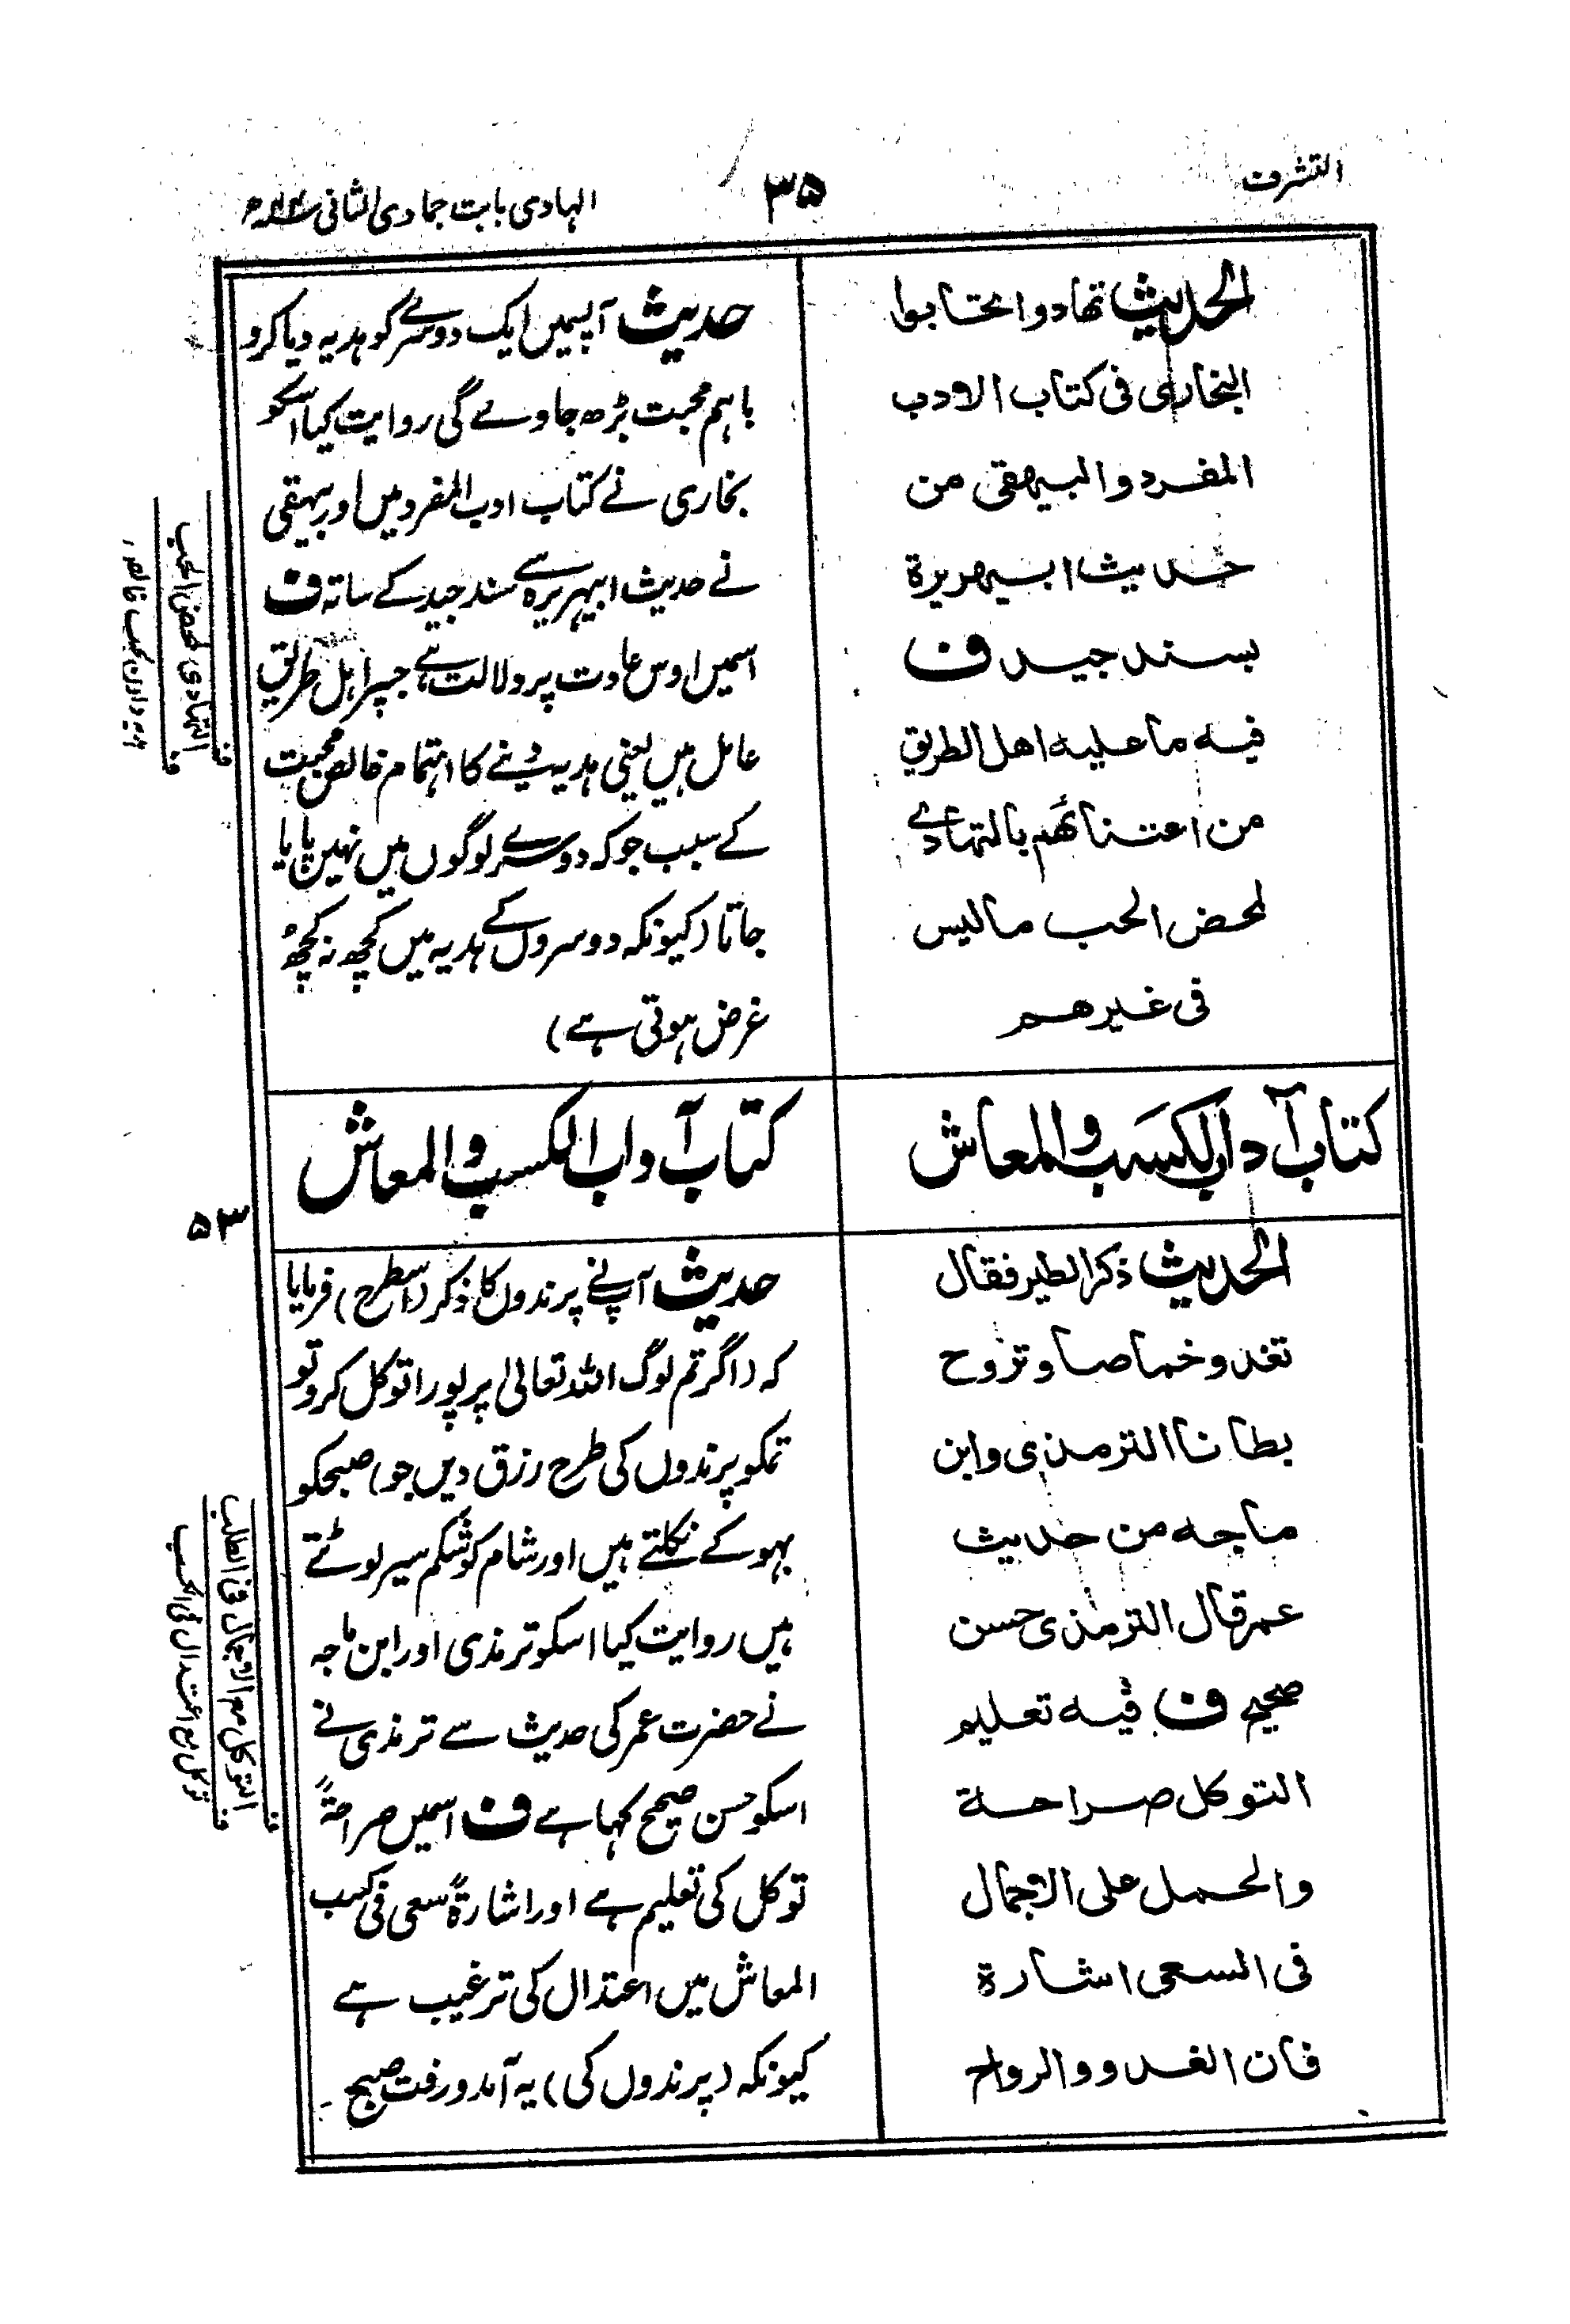 التشرف
۳۵
الہادی بابت جمادی الثانی
الحدیث تهادوا تحابوا
البخاری فی کتاب الادب
المفرد والبیهقی من
حدیث ابیهریرة
بسند جید ف
فیه ما علیه اهل الطریق
من اعتنائهم بالتهادے
لمحض الحب ما لیس
فی غیرهم
حدیث آپسمیں ایک دوسرے کو ہدیہ دیا کرو
باہم محبت بڑھ جاوے گی روایت کیا اسکو
بخاری نے کتاب ادب المفرد میں اور بیہقی
نے حدیث ابیہریرہ سے سند جید کے ساتہ ف
اسمیں اوس عادت پر دلالت ہے جسپر اہل طریق
عامل ہیں یعنی ہدیہ دینے کا اہتمام خالص محبت
کے سبب جو کہ دوسرے لوگوں میں نہیں پایا
جاتا (کیونکہ دوسروں کے ہدیہ میں کچھ نہ کچھ
غرض ہوتی ہے)
ف التهادی لمحض الحب
ف ہدیہ دادن بمحبت خالص
کتاب آداب الکسب والمعاش
کتاب آداب الکسب والمعاش
۵۳
الحدیث ذکر الطیر فقال
تغدو خماصا وتروح
بطانا الترمذی وابن
ماجه من حدیث
عمر قال الترمذی حسن
صحیح ف فیه تعلیم
التوکل صراحة
والحمل علی الاجمال
فی السعی اشارة
فان الغدو والرواح
حدیث آپنے پرندوں کا ذکر (اسطرح) فرمایا
کہ (اگر تم لوگ اللہ تعالیٰ پر پورا توکل کرو تو
تمکو پرندوں کی طرح رزق دیں جو) صبحکو
بہوکے نکلتے ہیں اور شام کو شکم سیر لوٹتے
ہیں روایت کیا اسکو ترمذی اور ابن ماجہ
نے حضرت عمر کی حدیث سے ترمذی نے
اسکو حسن صحیح کہا ہے ف اسمیں صراحۃً
توکل کی تعلیم ہے اور اشارۃً سعی فی کسب
المعاش میں اعتدال کی ترغیب ہے
کیونکہ (پرندوں کی) یہ آمد و رفت صبح
ف التوکل مع الاجمال فی الطلب
ف توکل مع اعتدال فی الکسب